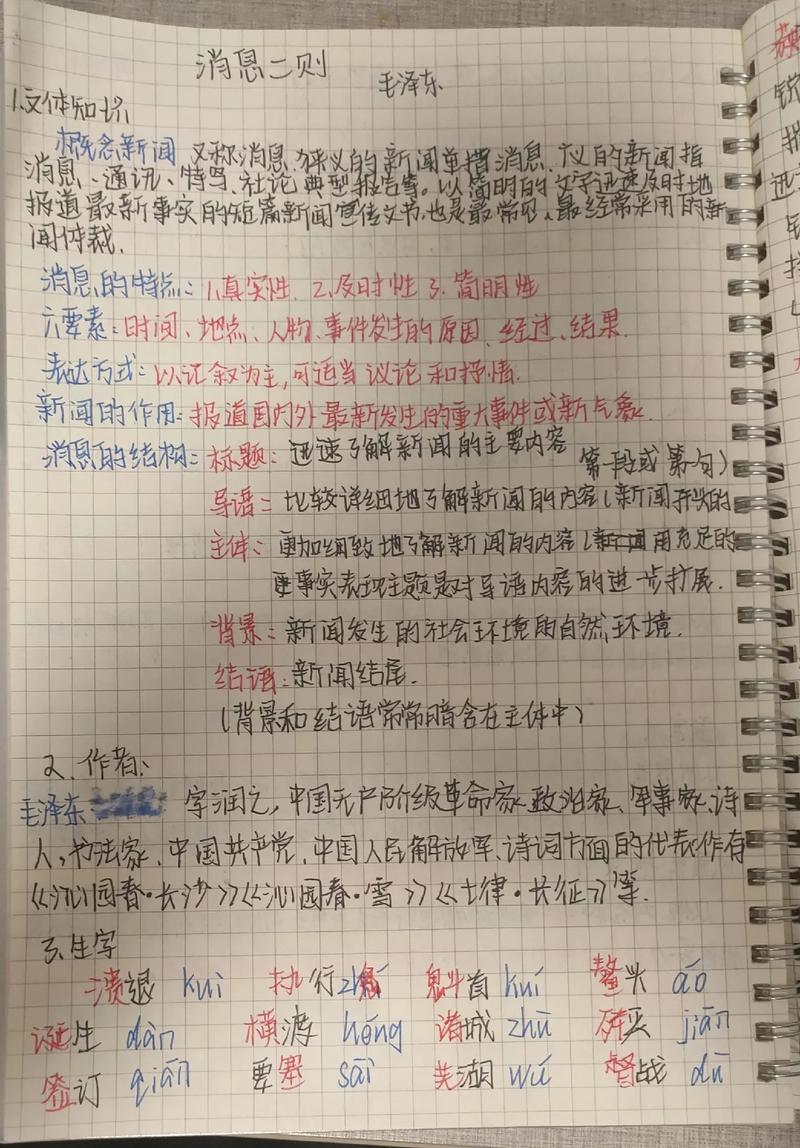 消息二则
毛泽东
1.文体知识
概念新闻 又称消息,狭义的新闻单指消息,广义的新闻指
消息、通讯、特写、社论典型报告等。以简明的文字迅速及时地
报道最新事实的短篇新闻宣传文书,也是最常见、最经常采用的新
闻体裁.
消息的特点:1.真实性 2.及时性 3.简明性
六要素:时间、地点、人物、事件发生的原因、经过、结果.
表达方式:以记叙为主,可适当议论和抒情.
新闻的作用:报道国内外最新发生的重大事件或新气象.
消息的结构:标题:迅速了解新闻的主要内容
第一段或第一句)
导语:比较详细地了解新闻的内容(新闻开头的
主体:更加细致地了解新闻的内容(新闻用充足的
事实表现主题是对导语内容的进一步扩展.
背景:新闻发生的社会环境和自然环境.
结语:新闻结尾.
(背景和结语常常暗含在主体中)
2.作者:
毛泽东 字润之,中国无产阶级革命家、政治家、军事家、诗
人,书法家、中国共产党、中国人民解放军、诗词方面的代表作有
《沁园春·长沙》《沁园春·雪》《七律·长征》等.
3.生字
溃退 kuì 执行 魁首 kuí 鳌头 áo
诞生 dàn 横渡 héng 诸城 zhū 歼灭 jiān
签订 qiān 要塞 sài 芜湖 wú 督战 dū